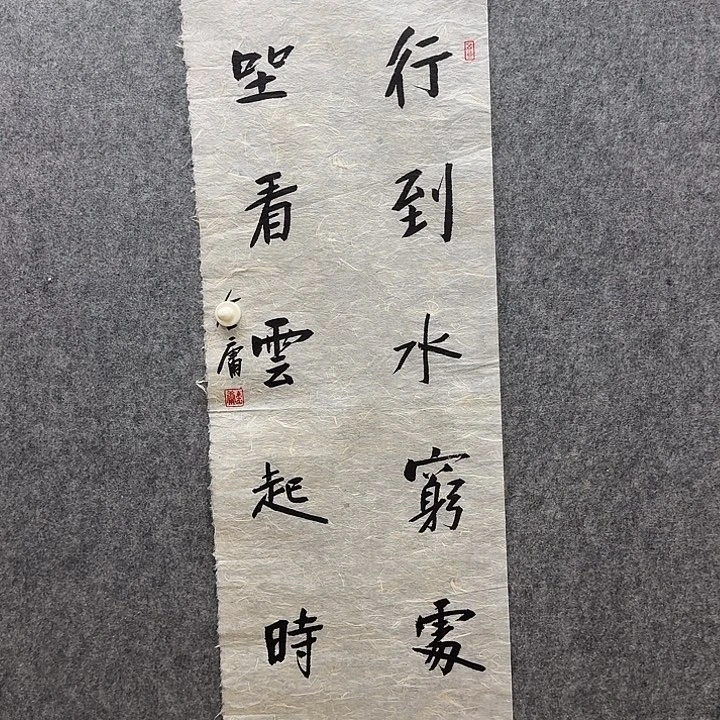 行到水窮處
坐看雲起時
庸